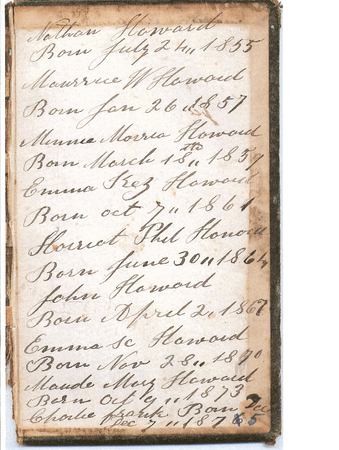 Nathan Howard
Born July 24,, 1855
Maurrice W Howard
Born Jan 26,, 1857
Minnie Morria Howard
Born March 18th,, 1859
Emma Kez Howard
Born oct 7,, 1861
Harriet Phil Howard
Born June 30,, 1864
John Howard
Born April 2,, 1867
Emma Howard
Born Nov 28,, 1870
Maude May Howard
Born Oct 9,, 1873
Charlie frank Born Dec
Dec 7,, 187